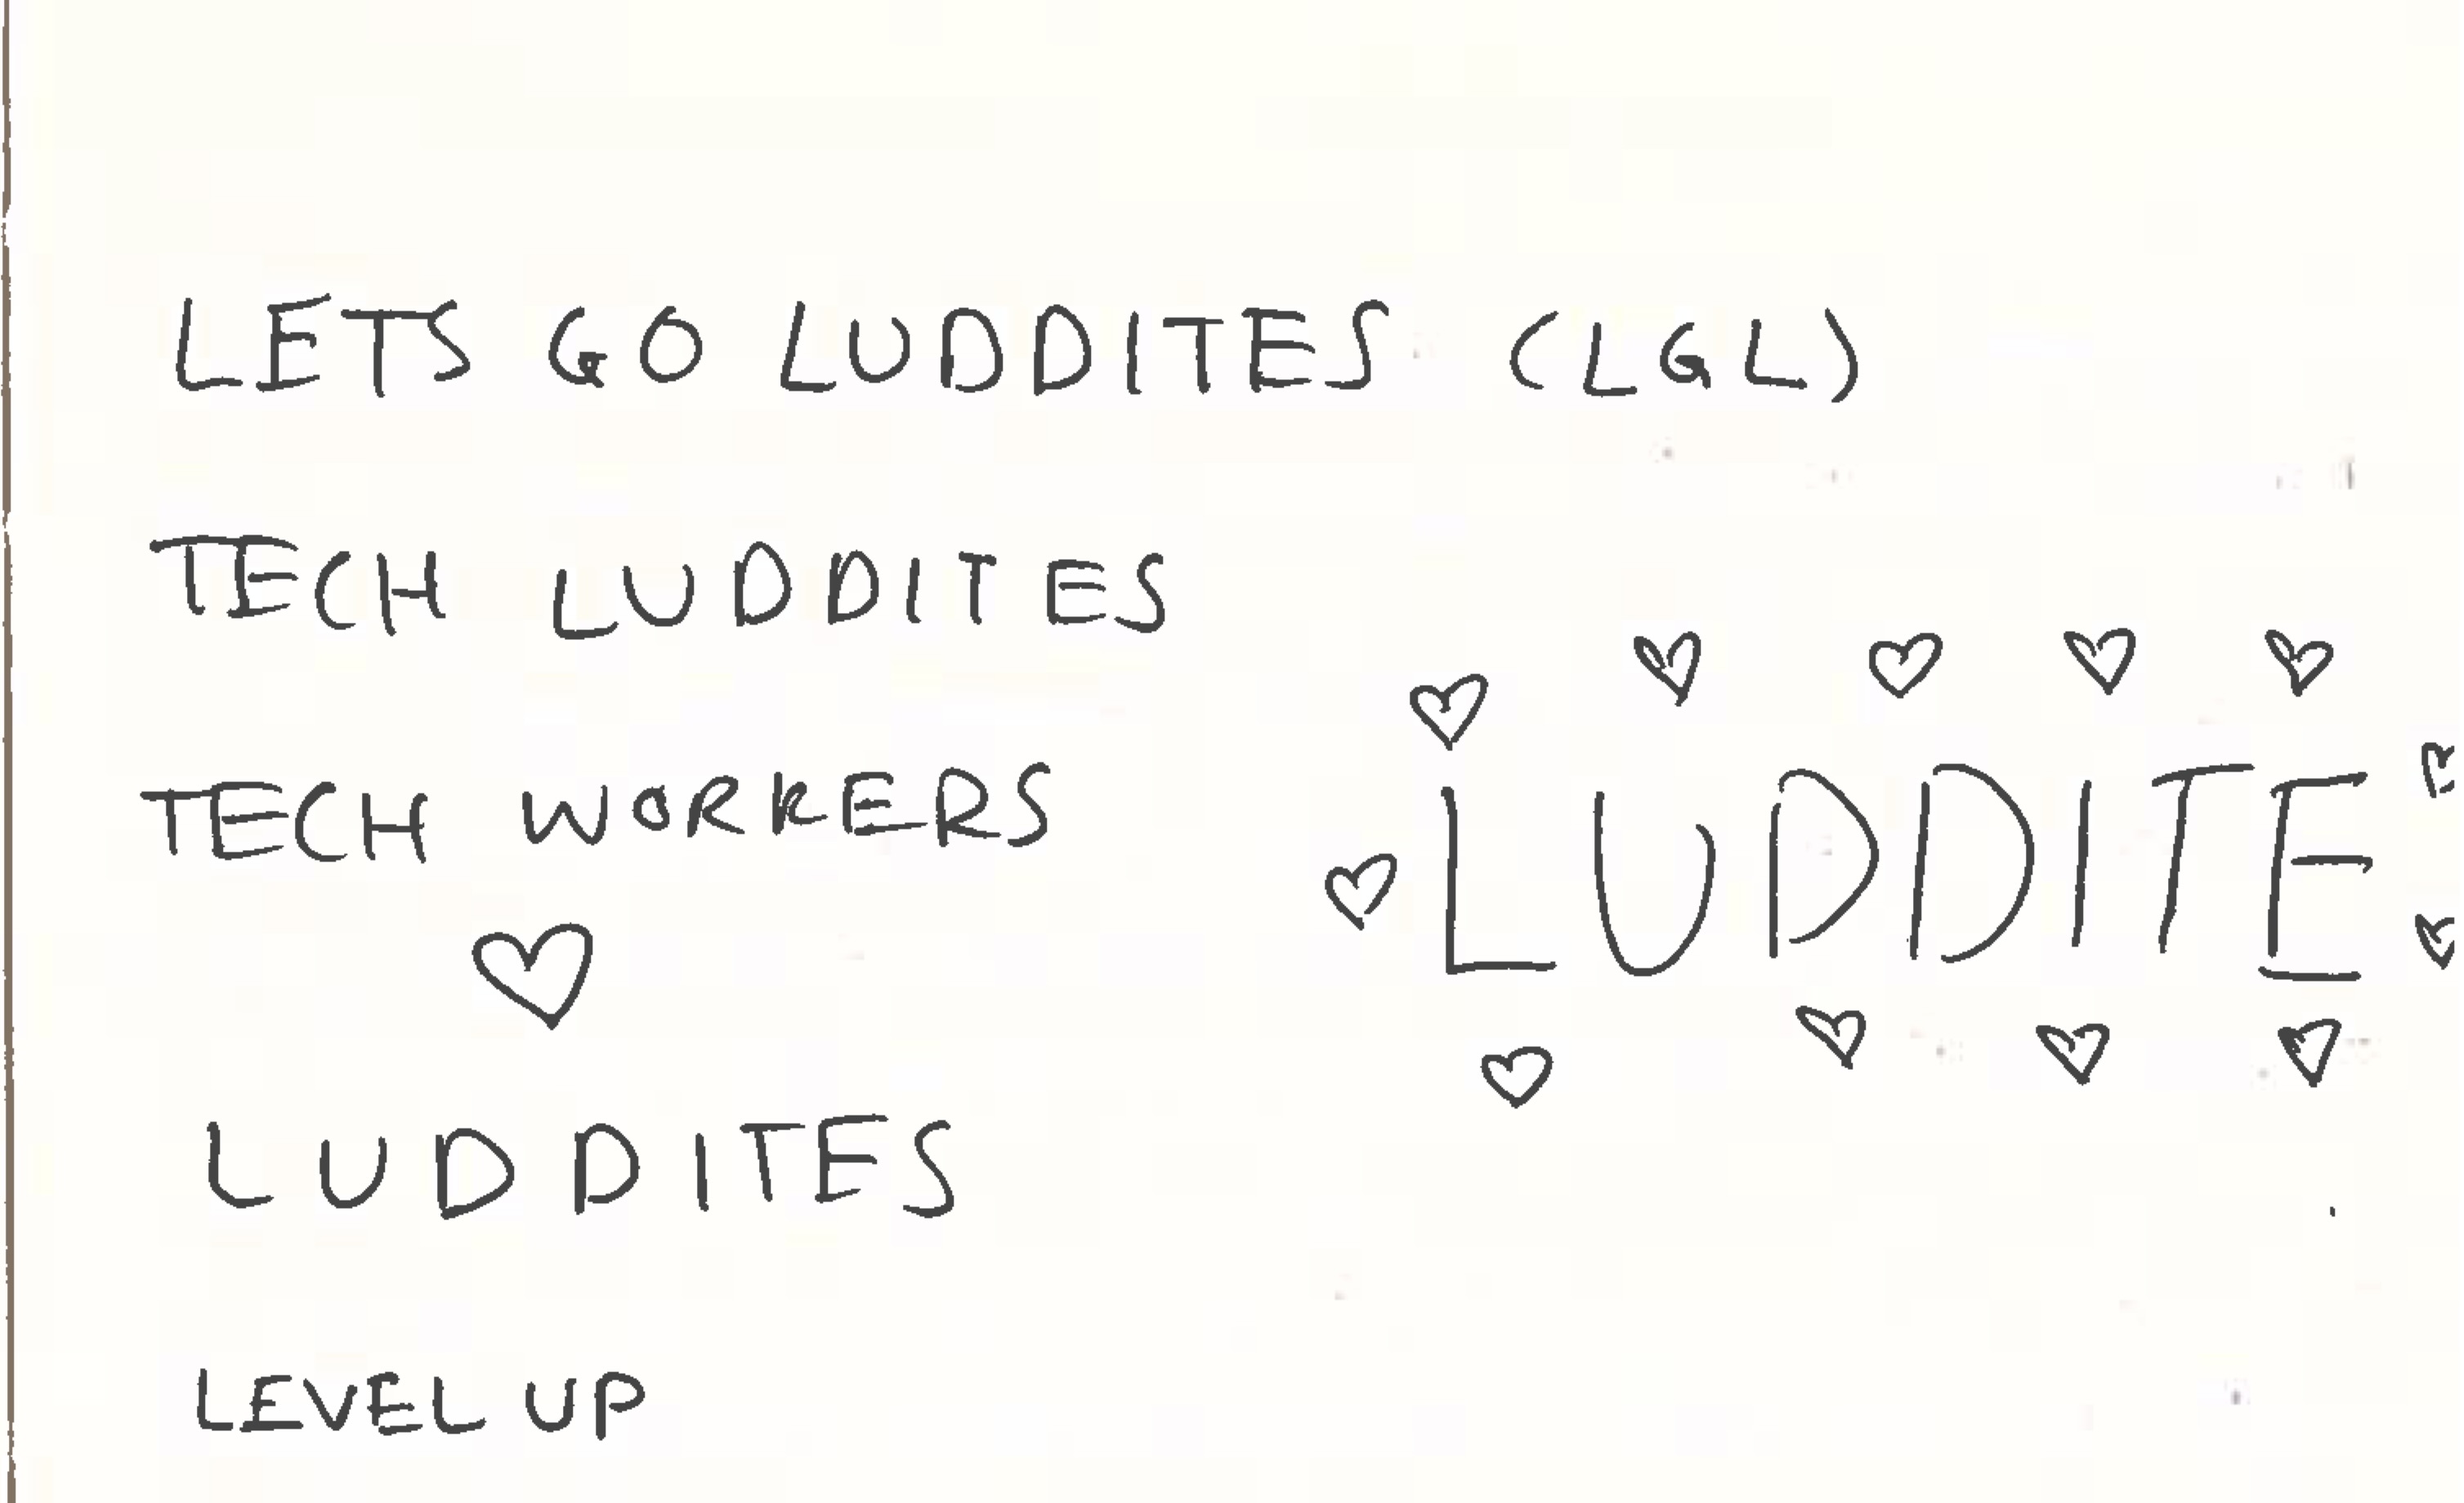 LETS GO LUDDITES (LGL)
TECH LUDDITES
TECH WORKERS
♡
LUDDITES
LEVEL UP
LUDDITE